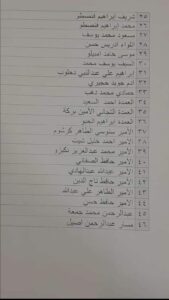 ٢٥ شريف ابراهيم قنصطو
٢٦ محمد إبراهيم قنصطو
٢٧ مسعود محمد يوسف
٢٨ اللواء الدريس حسن
٢٩ موسى حامد امبيلو
٣٠ السيف يوسف محمد
٣١ إبراهيم علي عبدالنبي
٣٢ آدم حويد حجيري
٣٣ حمادي محمد دهب
٣٤ العمدة احمد السعيد
٣٥ العمدة التجاني الأمين بركة
٣٦ العمدة ابراهيم
٣٧ الأمير سنوسي الطاهر كرشوم
٣٨ الأمير احمد خليل شيت
٣٩ الأمير محمد عبدالعزيز
٤٠ الأمير حافظ الصفاني
٤١ الأمير عبدالله عبدالهادي
٤٢ الأمير حافظ تاج الدين
٤٣ الأمير الطاهر علي عبدالله
٤٤ الأمير حافظ حسن
٤٥ عبدالرحمن محمد جمعة
٤٦ مسار عبدالرحمن اصيل